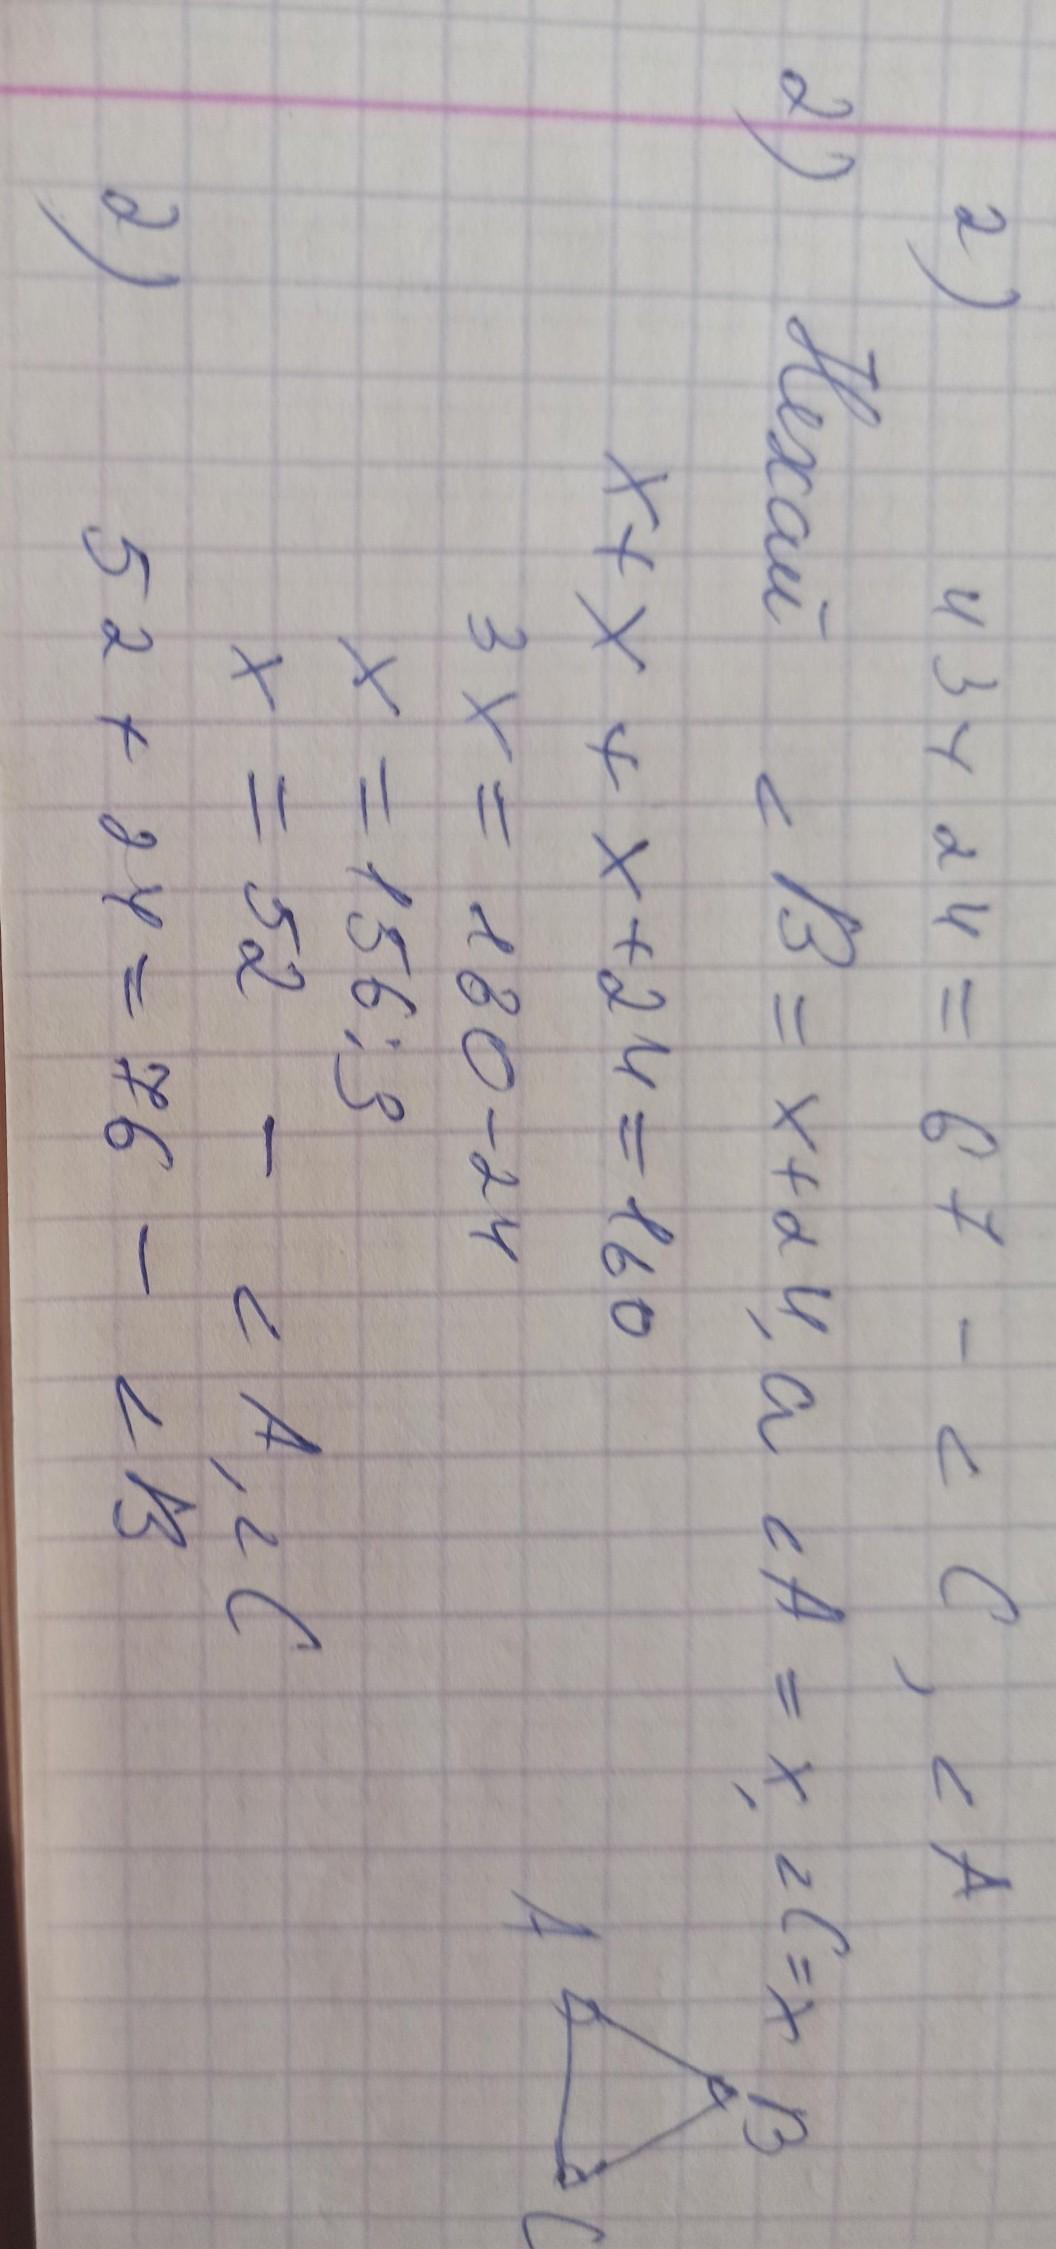 2) 43+24=67 - ∠C, ∠A
2) Нехай ∠B = x+24, а ∠A = x, ∠C=x
x+x+x+24=160
3x=180-24
x=156:3
x=52 - ∠A, ∠C
2) 52+24=76 - ∠B
B
A
C